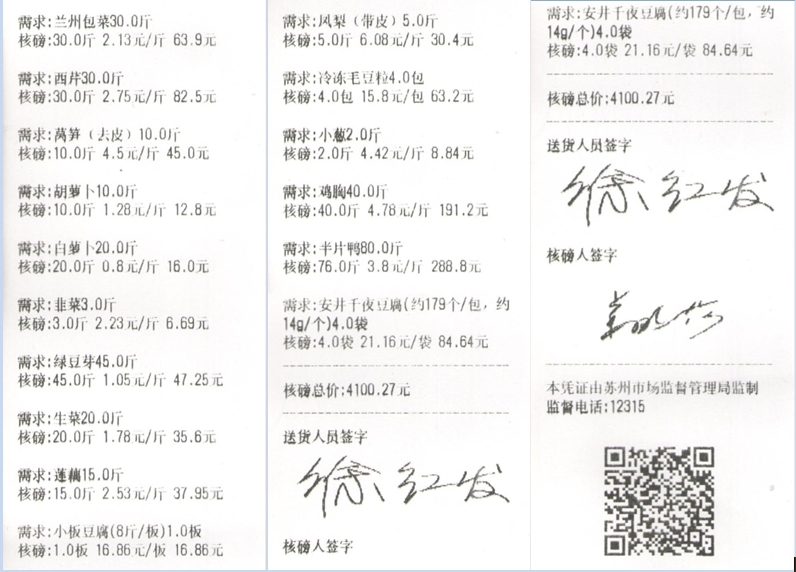 需求:兰州包菜30.0斤
核磅:30.0斤 2.13元/斤 63.9元
需求:西芹30.0斤
核磅:30.0斤 2.75元/斤 82.5元
需求:莴笋（去皮）10.0斤
核磅:10.0斤 4.5元/斤 45.0元
需求:胡萝卜10.0斤
核磅:10.0斤 1.28元/斤 12.8元
需求:白萝卜20.0斤
核磅:20.0斤 0.8元/斤 16.0元
需求:韭菜3.0斤
核磅:3.0斤 2.23元/斤 6.69元
需求:绿豆芽45.0斤
核磅:45.0斤 1.05元/斤 47.25元
需求:生菜20.0斤
核磅:20.0斤 1.78元/斤 35.6元
需求:莲藕15.0斤
核磅:15.0斤 2.53元/斤 37.95元
需求:小板豆腐(8斤/板)1.0板
核磅:1.0板 16.86元/板 16.86元
需求:凤梨（带皮）5.0斤
核磅:5.0斤 6.08元/斤 30.4元
需求:冷冻毛豆粒4.0包
核磅:4.0包 15.8元/包 63.2元
需求:小葱2.0斤
核磅:2.0斤 4.42元/斤 8.84元
需求:鸡胸40.0斤
核磅:40.0斤 4.78元/斤 191.2元
需求:半片鸭80.0斤
核磅:76.0斤 3.8元/斤 288.8元
需求:安井千夜豆腐(约179个/包，约
14g/个)4.0袋
核磅:4.0袋 21.16元/袋 84.64元
核磅总价:4100.27元
送货人员签字
徐红发
核磅人签字
需求:安井千夜豆腐(约179个/包，约
14g/个)4.0袋
核磅:4.0袋 21.16元/袋 84.64元
核磅总价:4100.27元
送货人员签字
徐红发
核磅人签字
本凭证由苏州市场监督管理局监制
监督电话:12315